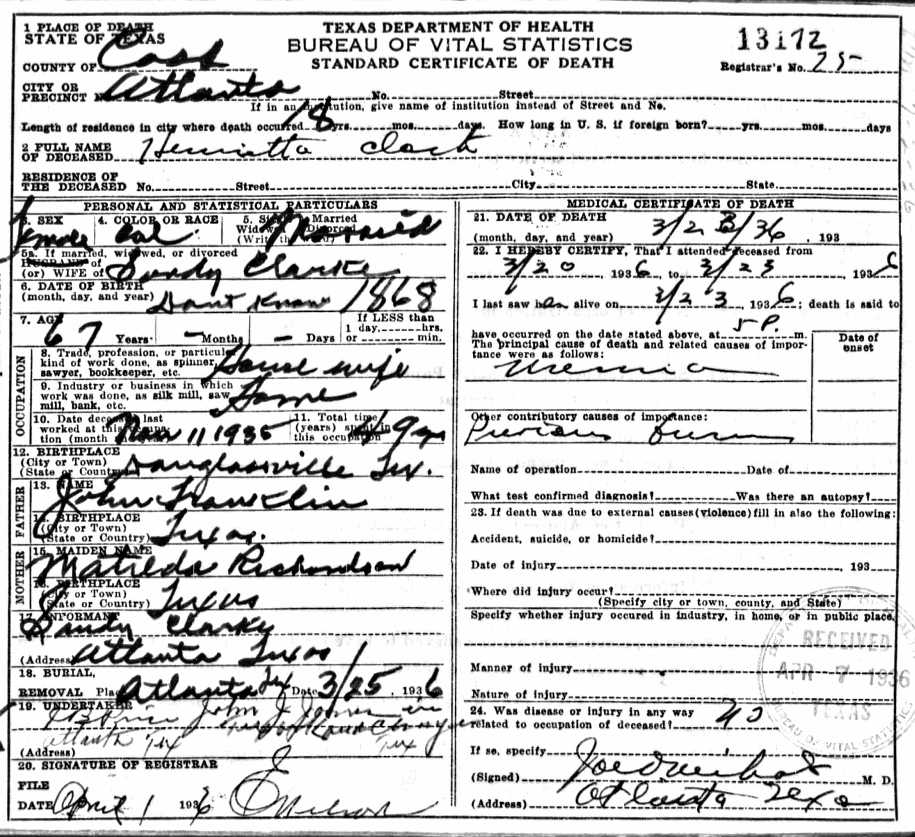 TEXAS DEPARTMENT OF HEALTH
BUREAU OF VITAL STATISTICS
STANDARD CERTIFICATE OF DEATH
13172
Registrar's No. 25
1 PLACE OF DEATH
STATE OF TEXAS
COUNTY OF Cass
CITY OR PRECINCT Atlanta No. Street
If in an institution, give name of institution instead of Street and No.
Length of residence in city where death occurred 18 yrs. mos. days. How long in U. S. if foreign born? yrs. mos. days
2 FULL NAME OF DECEASED Henrietta Clark
RESIDENCE OF THE DECEASED No. Street City State
PERSONAL AND STATISTICAL PARTICULARS
3. SEX Female
4. COLOR OR RACE Col.
5. Married Married
5a. If married, widowed, or divorced
HUSBAND of
(or) WIFE of Sandy Clarke
6. DATE OF BIRTH
(month, day, and year) Dont Know 1868
7. AGE 67 Years - Months - Days
If LESS than
1 day, hrs.
or min.
OCCUPATION
8. Trade, profession, or particular
kind of work done, as spinner,
sawyer, bookkeeper, etc. House wife
9. Industry or business in which
work was done, as silk mill, saw
mill, bank, etc. Home
10. Date deceased last
worked at this occupa-
tion (month Nov 11 1935
11. Total time
(years) spent in
this occupation
12. BIRTHPLACE
(City or Town)
(State or Country) Douglassville Tex.
FATHER
13. NAME John Franklin
14. BIRTHPLACE
(City or Town)
(State or Country) Texas.
MOTHER
15. MAIDEN NAME Matilda Richardson
16. BIRTHPLACE
(City or Town)
(State or Country) Texas
17. INFORMANT Sandy Clarky
(Address) Atlanta Texas
18. BURIAL,
REMOVAL Place Atlanta Tex Date 3/25, 1936
19. UNDERTAKER
John
(Address) Atlanta Tex
Tex
20. SIGNATURE OF REGISTRAR
FILE
DATE April 1 1936
MEDICAL CERTIFICATE OF DEATH
21. DATE OF DEATH
(month, day, and year) 3/23/36, 193
22. I HEREBY CERTIFY, That I attended deceased from
3/20, 1936, to 3/23, 1936
I last saw her alive on 3/23, 1936; death is said to
have occurred on the date stated above, at 5 P. m.
The principal cause of death and related causes of impor-
tance were as follows:
Date of
onset
Uremia
Other contributory causes of importance:
Name of operation Date of
What test confirmed diagnosis? Was there an autopsy?
23. If death was due to external causes (violence) fill in also the following:
Accident, suicide, or homicide?
Date of injury, 193
Where did injury occur?
(Specify city or town, county, and State)
Specify whether injury occured in industry, in home, or in public place.
Manner of injury
Nature of injury
24. Was disease or injury in any way
related to occupation of deceased? no
If so, specify
(Signed) M. D.
(Address) Atlanta Texa
RECEIVED
APR 7 1936
TEXAS
BUREAU OF VITAL STATISTICS